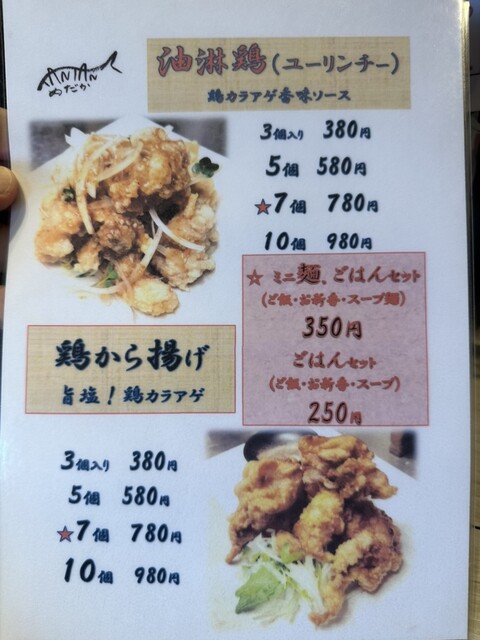 TANTAN
めだか
油淋鶏(ユーリンチー)
鶏カラアゲ香味ソース
3個入り 380円
5個 580円
★7個 780円
10個 980円
★ ミニ麺、ごはんセット
(ご飯・お新香・スープ麺)
350円
ごはんセット
(ご飯・お新香・スープ)
250円
鶏から揚げ
旨塩!鶏カラアゲ
3個入り 380円
5個 580円
★7個 780円
10個 980円